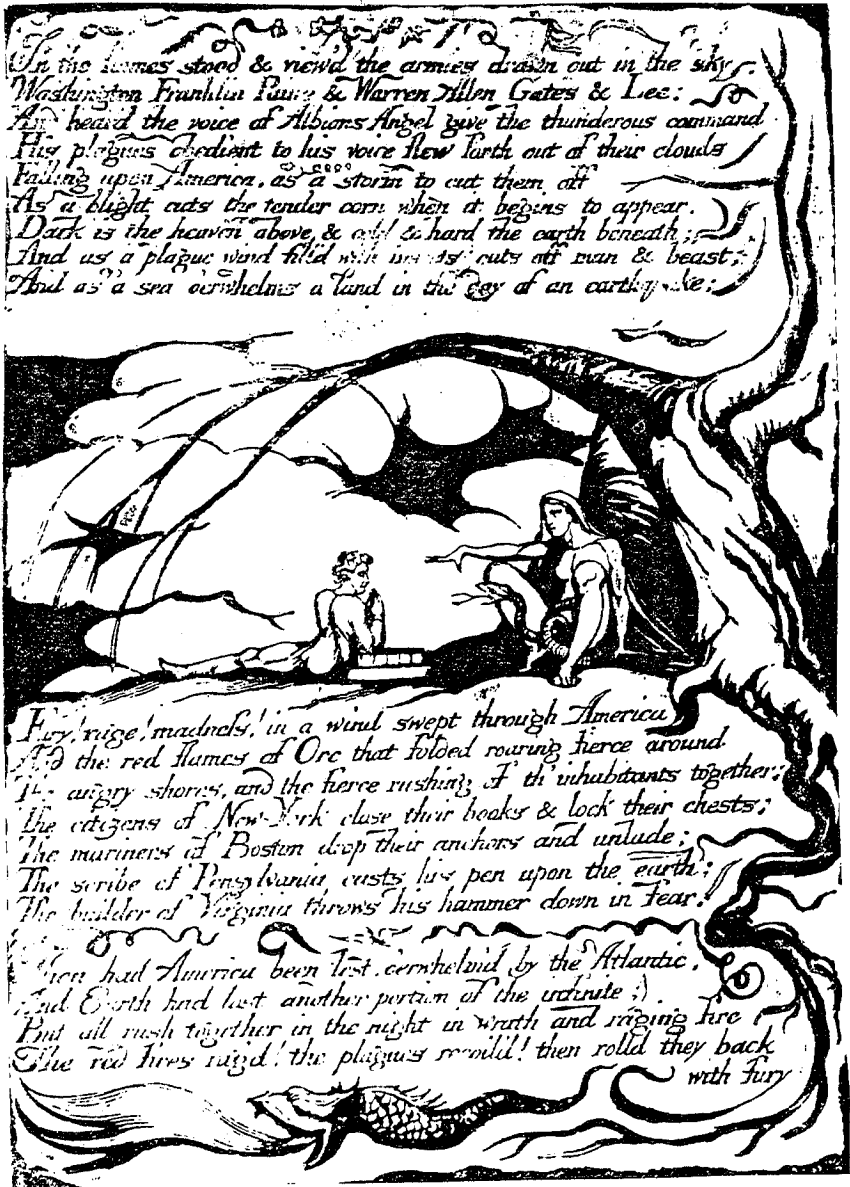 In the flames stood & view'd the armies drawn out in the sky
Washington Franklin Paine & Warren Allen Gates & Lee:
And heard the voice of Albions Angel give the thunderous command
His plagues obedient to his voice flew forth out of their clouds
Falling upon America, as a storm to cut them off
As a blight cuts the tender corn when it begins to appear.
Dark is the heaven above, & cold & hard the earth beneath;
And as a plague wind fill'd with insects cuts off man & beast;
And as a sea o'erwhelms a land in the day of an earthquake;
Fury! rage! madness! in a wind swept through America
And the red flames of Orc that folded roaring fierce around
The angry shores, and the fierce rushing of th'inhabitants together;
The citizens of New-York close their books & lock their chests;
The mariners of Boston drop their anchors and unlade;
The scribe of Pensylvania casts his pen upon the earth;
The builder of Virginia throws his hammer down in fear.
Then had America been lost, o'erwhelm'd by the Atlantic,
And Earth had lost another portion of the infinite;
But all rush together in the night in wrath and raging fire
The red fires rag'd! the plagues recoil'd! then rolld they back
with fury